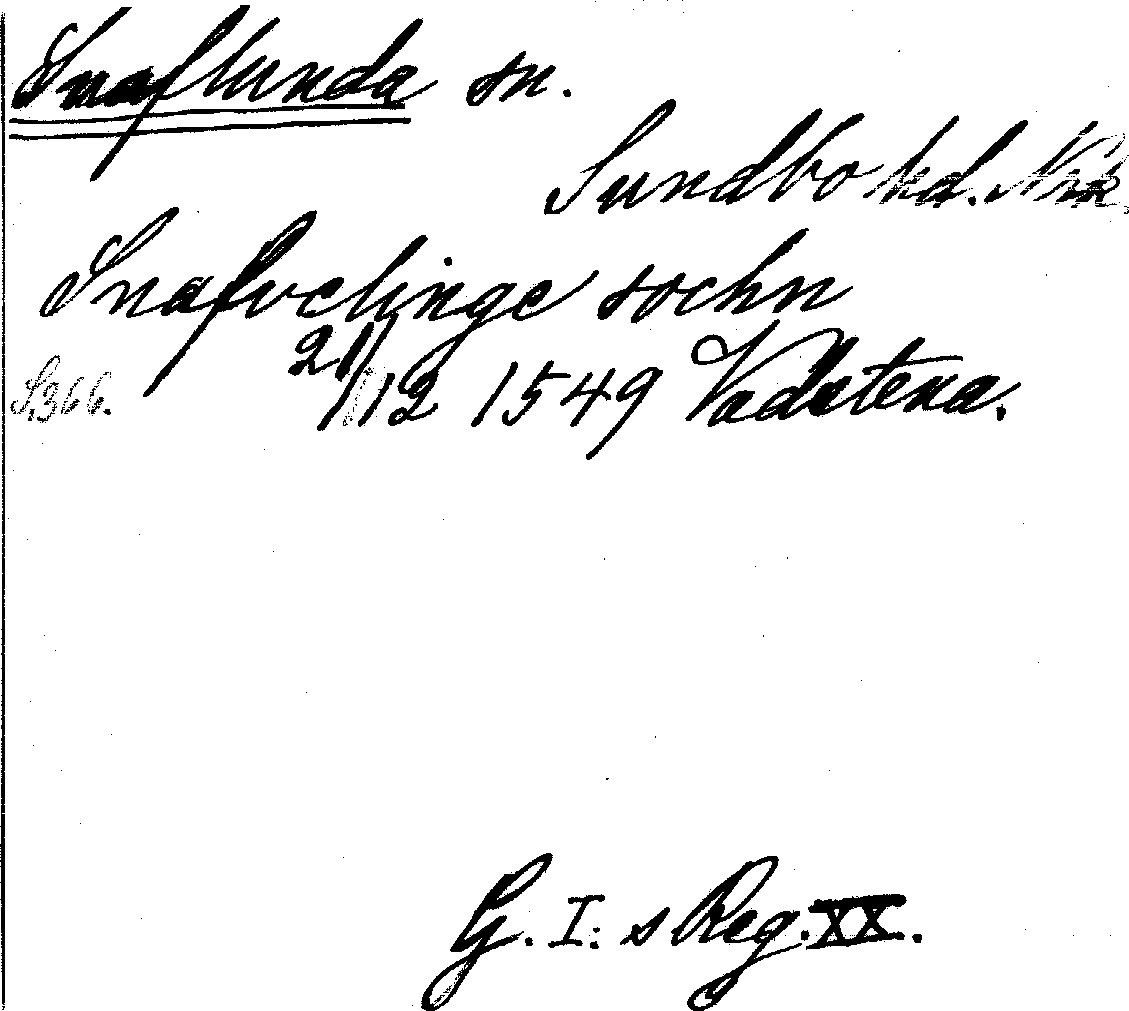 Snaflunda sn.
Sundbo hd. Nrk.
Snafvelinge sochn
S. 366. 21/12 1549 Vadstena.
G. I:s Reg. XX.